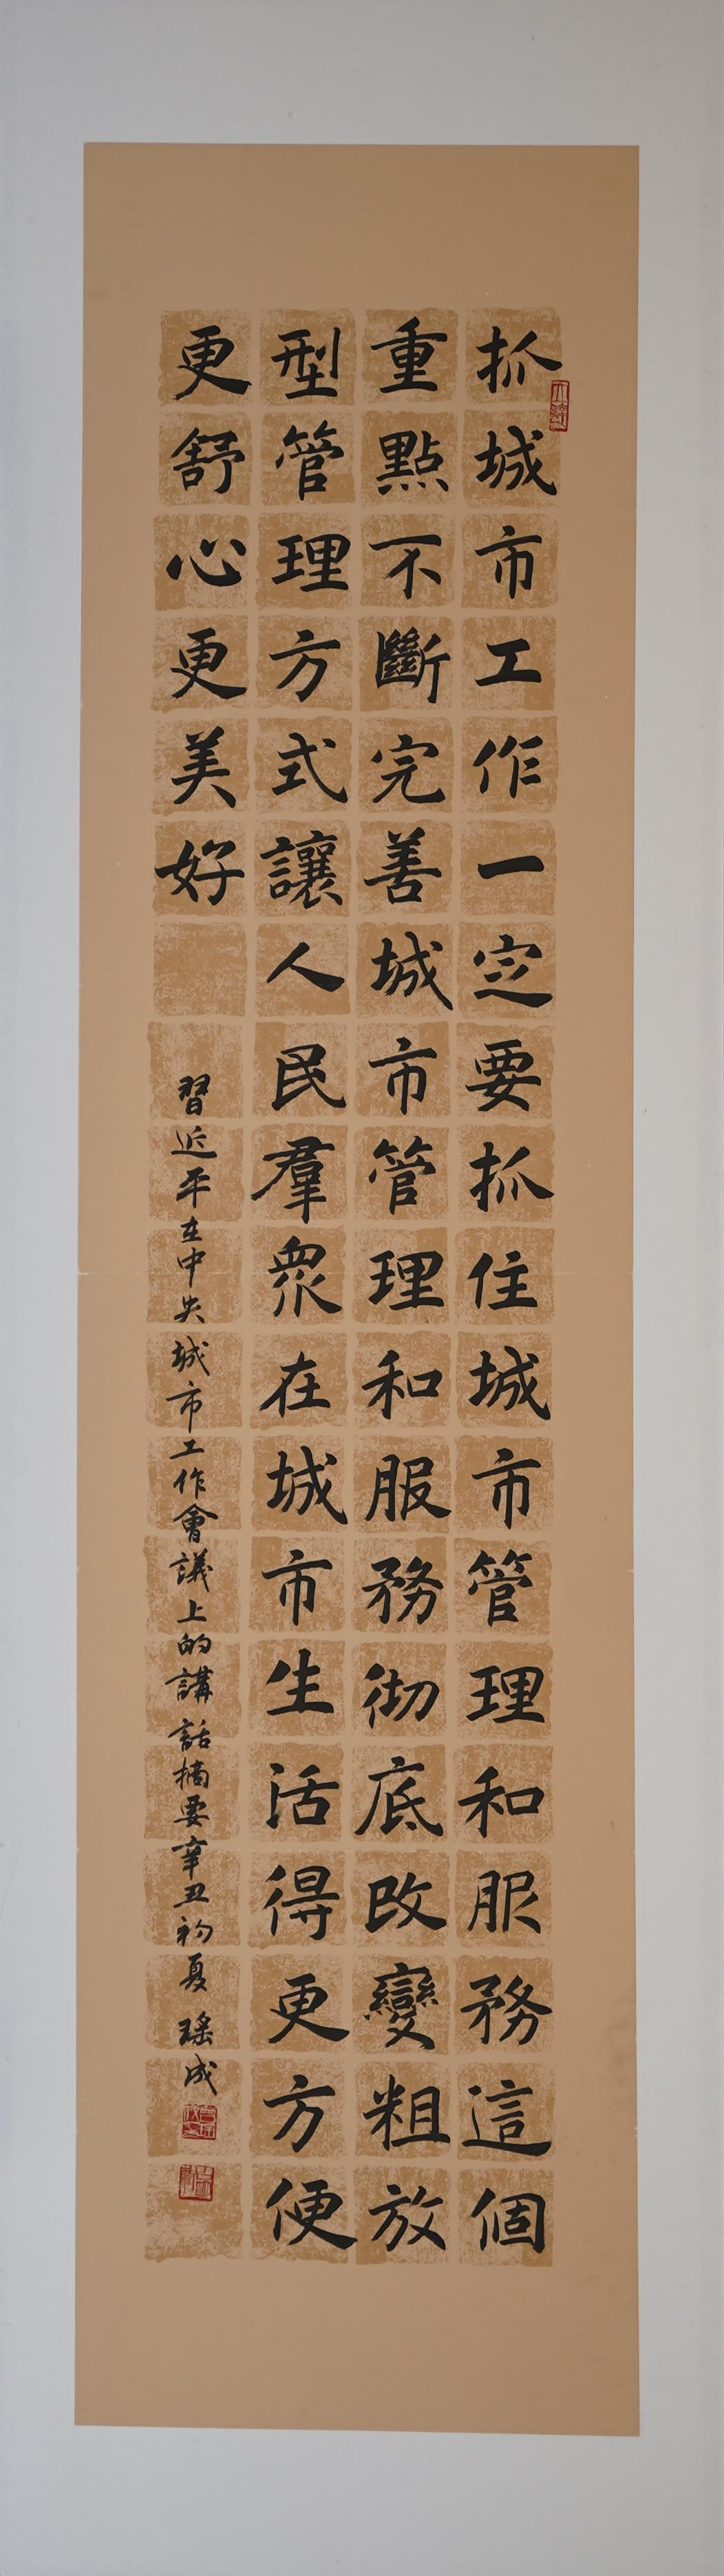 抓城市工作一定要抓住城市管理和服務這個
重點不斷完善城市管理和服務彻底改變粗放
型管理方式讓人民羣衆在城市生活得更方便
更舒心更美好
習近平在中央城市工作會議上的講話摘要辛丑初夏 瑶成